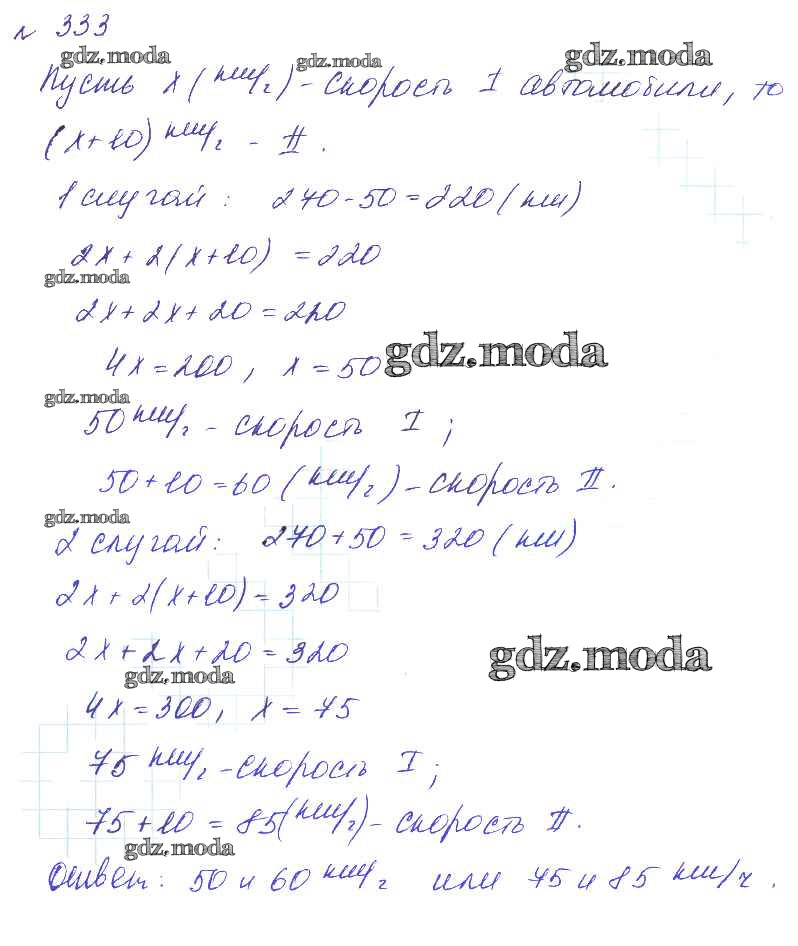 № 333
gdz.moda gdz.moda gdz.moda
Пусть x (км/ч) - скорость I автомобили, то
(x+10) км/ч - II.
1 случай: 270-50=220 (км)
2x+2(x+10) =220
gdz.moda
2x+2x+20=220
4x=200, x=50
gdz.moda
gdz.moda
50 км/ч - скорость I;
50+10=60 (км/ч) - скорость II.
gdz.moda
2 случай: 270+50=320 (км)
2x+2(x+10)=320
2x+2x+20=320
gdz.moda
gdz.moda
4x=300, x=75
75 км/ч - скорость I;
75+10=85(км/ч) - скорость II.
gdz.moda
Ответ: 50 и 60 км/ч или 75 и 85 км/ч.